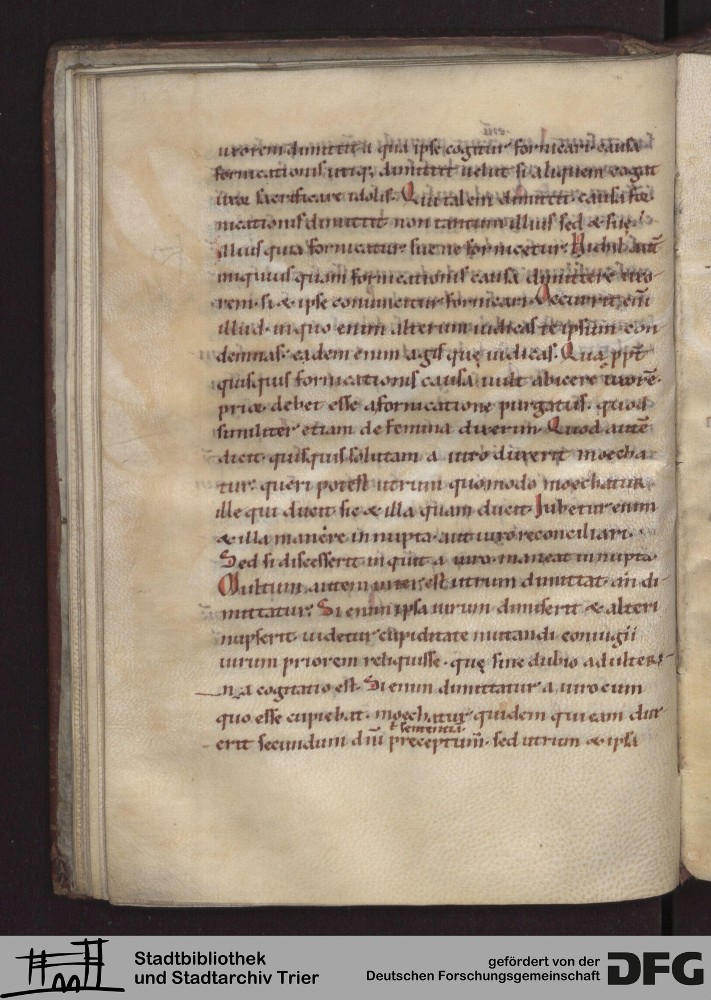 uxorem dimittit a qua ipse cogitur fornicari causa
fornicationis utiq; dimittit uelut si aliquem cogat
uxor sacrificare idolis. Qui talem dimittit causa for
nicationis dimittit non tantum illius sed & suę.
illius quia fornicatur suę ne fornicetur. Nichil aut̄
iniquius quam fornicationis causa dimittere uxo
rem. si & ipse conuincitur fornicari. Occurrit eni̅
illud. in quo enim alterum iudicas te ipsum con
demnas. eadem enim agis quę iudicas. Qua ppt̄
quisquis fornicationis causa uult abicere uxorē.
prior debet esse a fornicatione purgatus. quod
similiter etiam de femina dixerim. Quod autē
dicit. quisquis solutam a uiro duxerit moecha
tur. queri potest utrum quomodo moechatur
ille qui ducit sic & illa quam ducit. Iubetur enim
& illa manere innupta. aut uiro reconciliari.
Sed si discesserit inquit a uiro. maneat innupta.
Multum autem interest utrum dimittat. an di
mittatur. Si enim ipsa uirum dimiserit & alteri
nupserit. uidetur cupiditate mutandi coniugii
uirum priorem reliquisse. quę sine dubio adulteri
na cogitatio est. Si enim dimittatur a uiro cum
quo esse cupiebat. moechatur quidem qui eam dux
ł sententiā
erit secundum dn̄i preceptum. sed utrum & ipsa
Stadtbibliothek
und Stadtarchiv Trier
gefördert von der
Deutschen Forschungsgemeinschaft
DFG